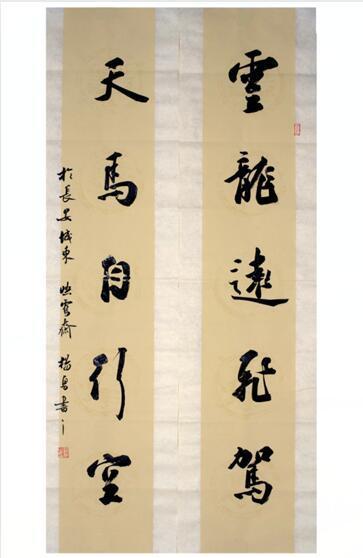 雲龍遠飛駕
天馬自行空
於長安城東 齋 楊書